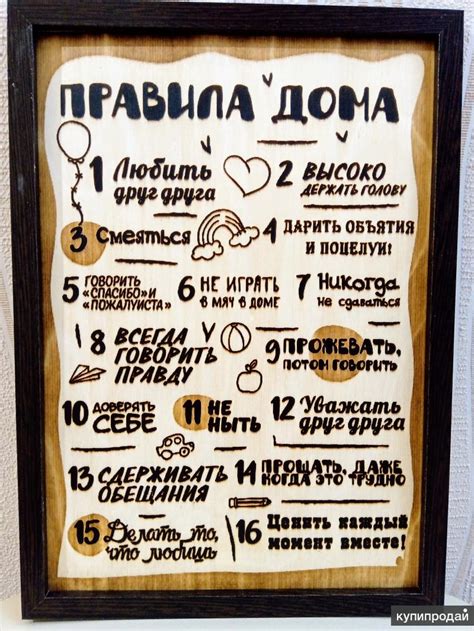 ПРАВИЛА ДОМА
1 Любить
друг друга
2 ВЫСОКО
ДЕРЖАТЬ ГОЛОВУ
3 Смеяться
4 ДАРИТЬ ОБЪЯТИЯ
И ПОЦЕЛУИ!
5 ГОВОРИТЬ
«СПАСИБО» И
«ПОЖАЛУИСТА»
6 НЕ ИГРАТЬ
В МЯЧ В ДОМЕ
7 Никогда
не сдаваться
8 ВСЕГДА
ГОВОРИТЬ
ПРАВДУ
9 ПРОЖЕВАТЬ,
ПОТОМ ГОВОРИТЬ
10 ДОВЕРЯТЬ
СЕБЕ
11 НЕ
НЫТЬ
12 Уважать
друг друга
13 СДЕРЖИВАТЬ
ОБЕЩАНИЯ
14 ПРОЩАТЬ, ДАЖЕ
КОГДА ЭТО ТРУДНО
15 Делать то,
что любишь
16 Ценить каждый
момент вместе!
купипродай